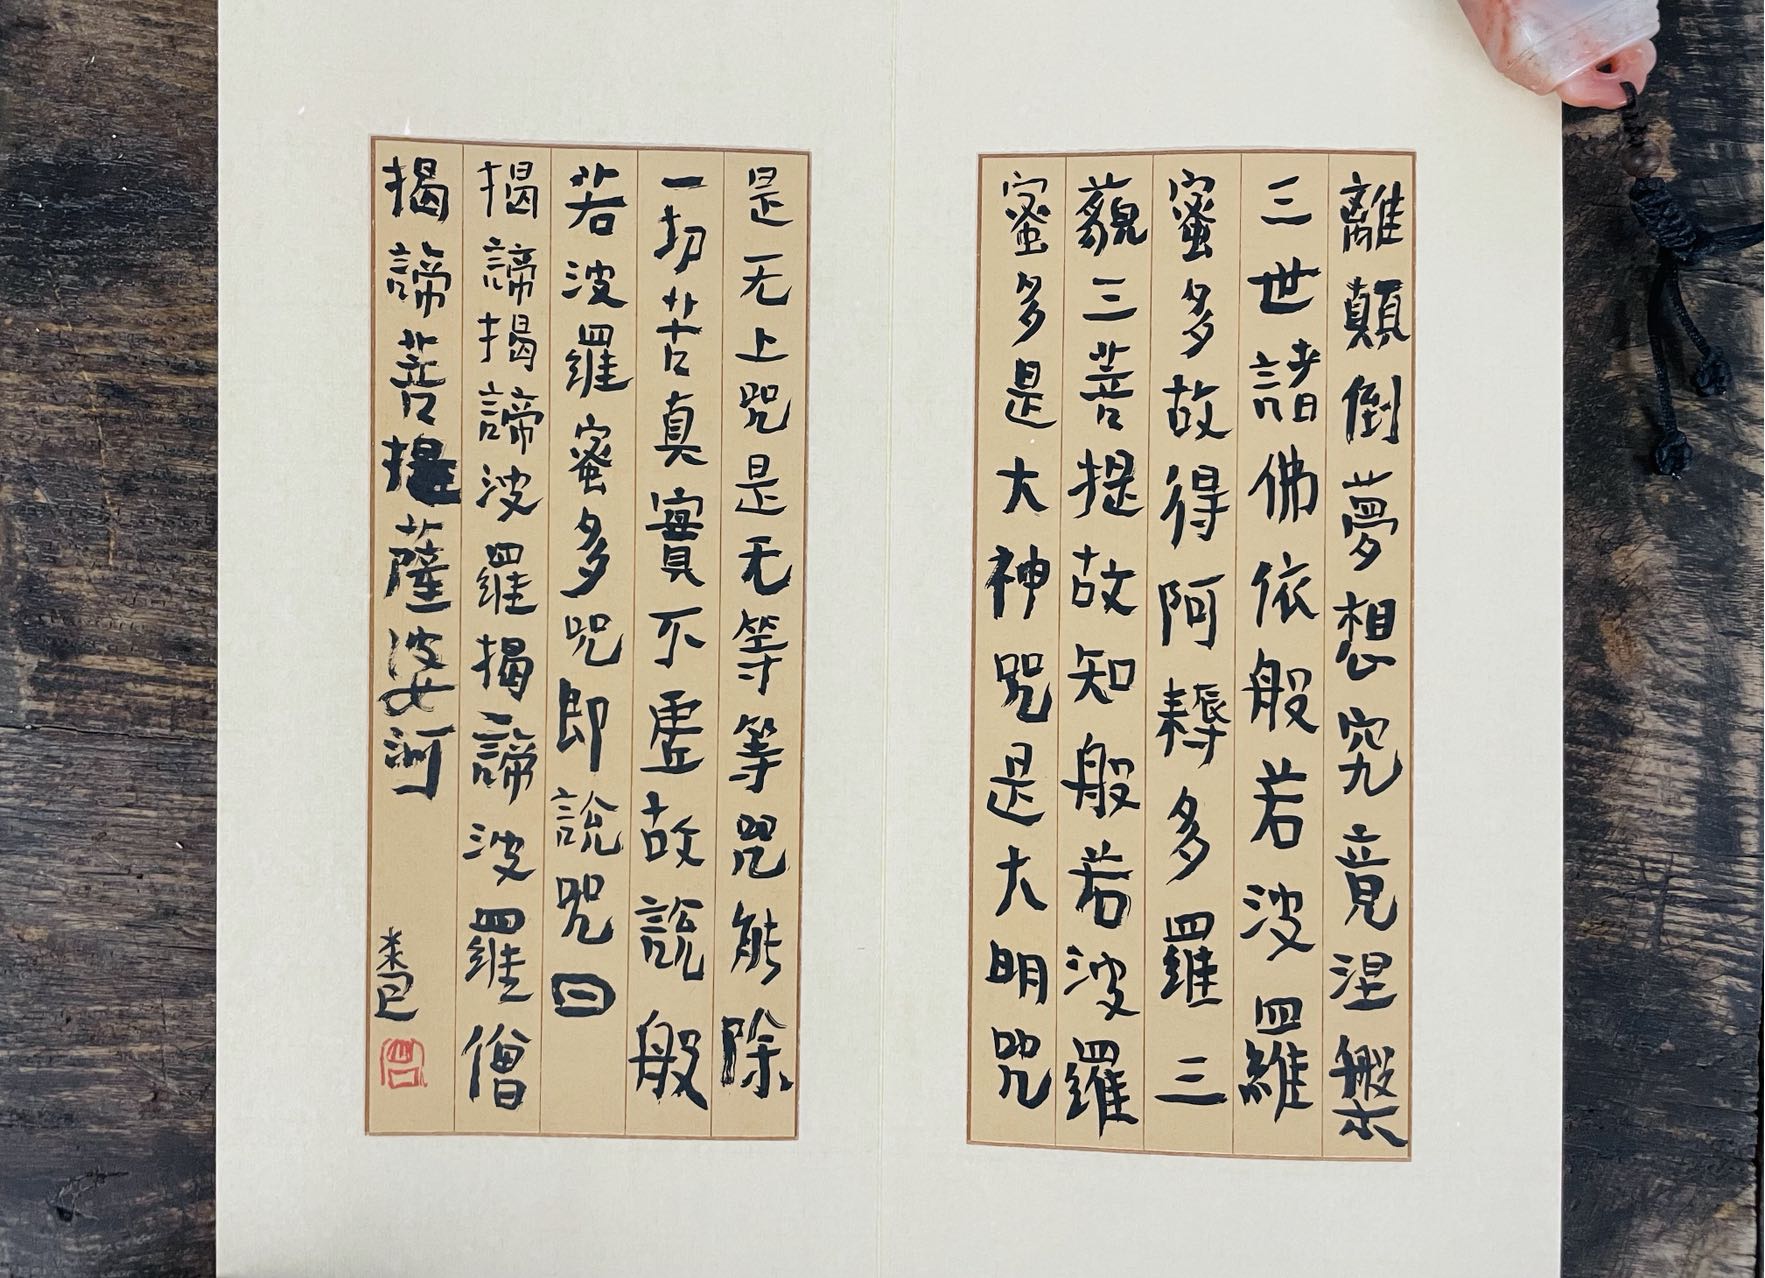 離顛倒夢想究竟涅槃
三世諸佛依般若波羅
蜜多故得阿耨多羅三
藐三菩提故知般若波羅
蜜多是大神咒是大明咒
是无上咒是无等等咒能除
一切苦真實不虛故說般
若波羅蜜多咒即說咒曰
揭諦揭諦波羅揭諦波羅僧
揭諦菩提薩婆訶